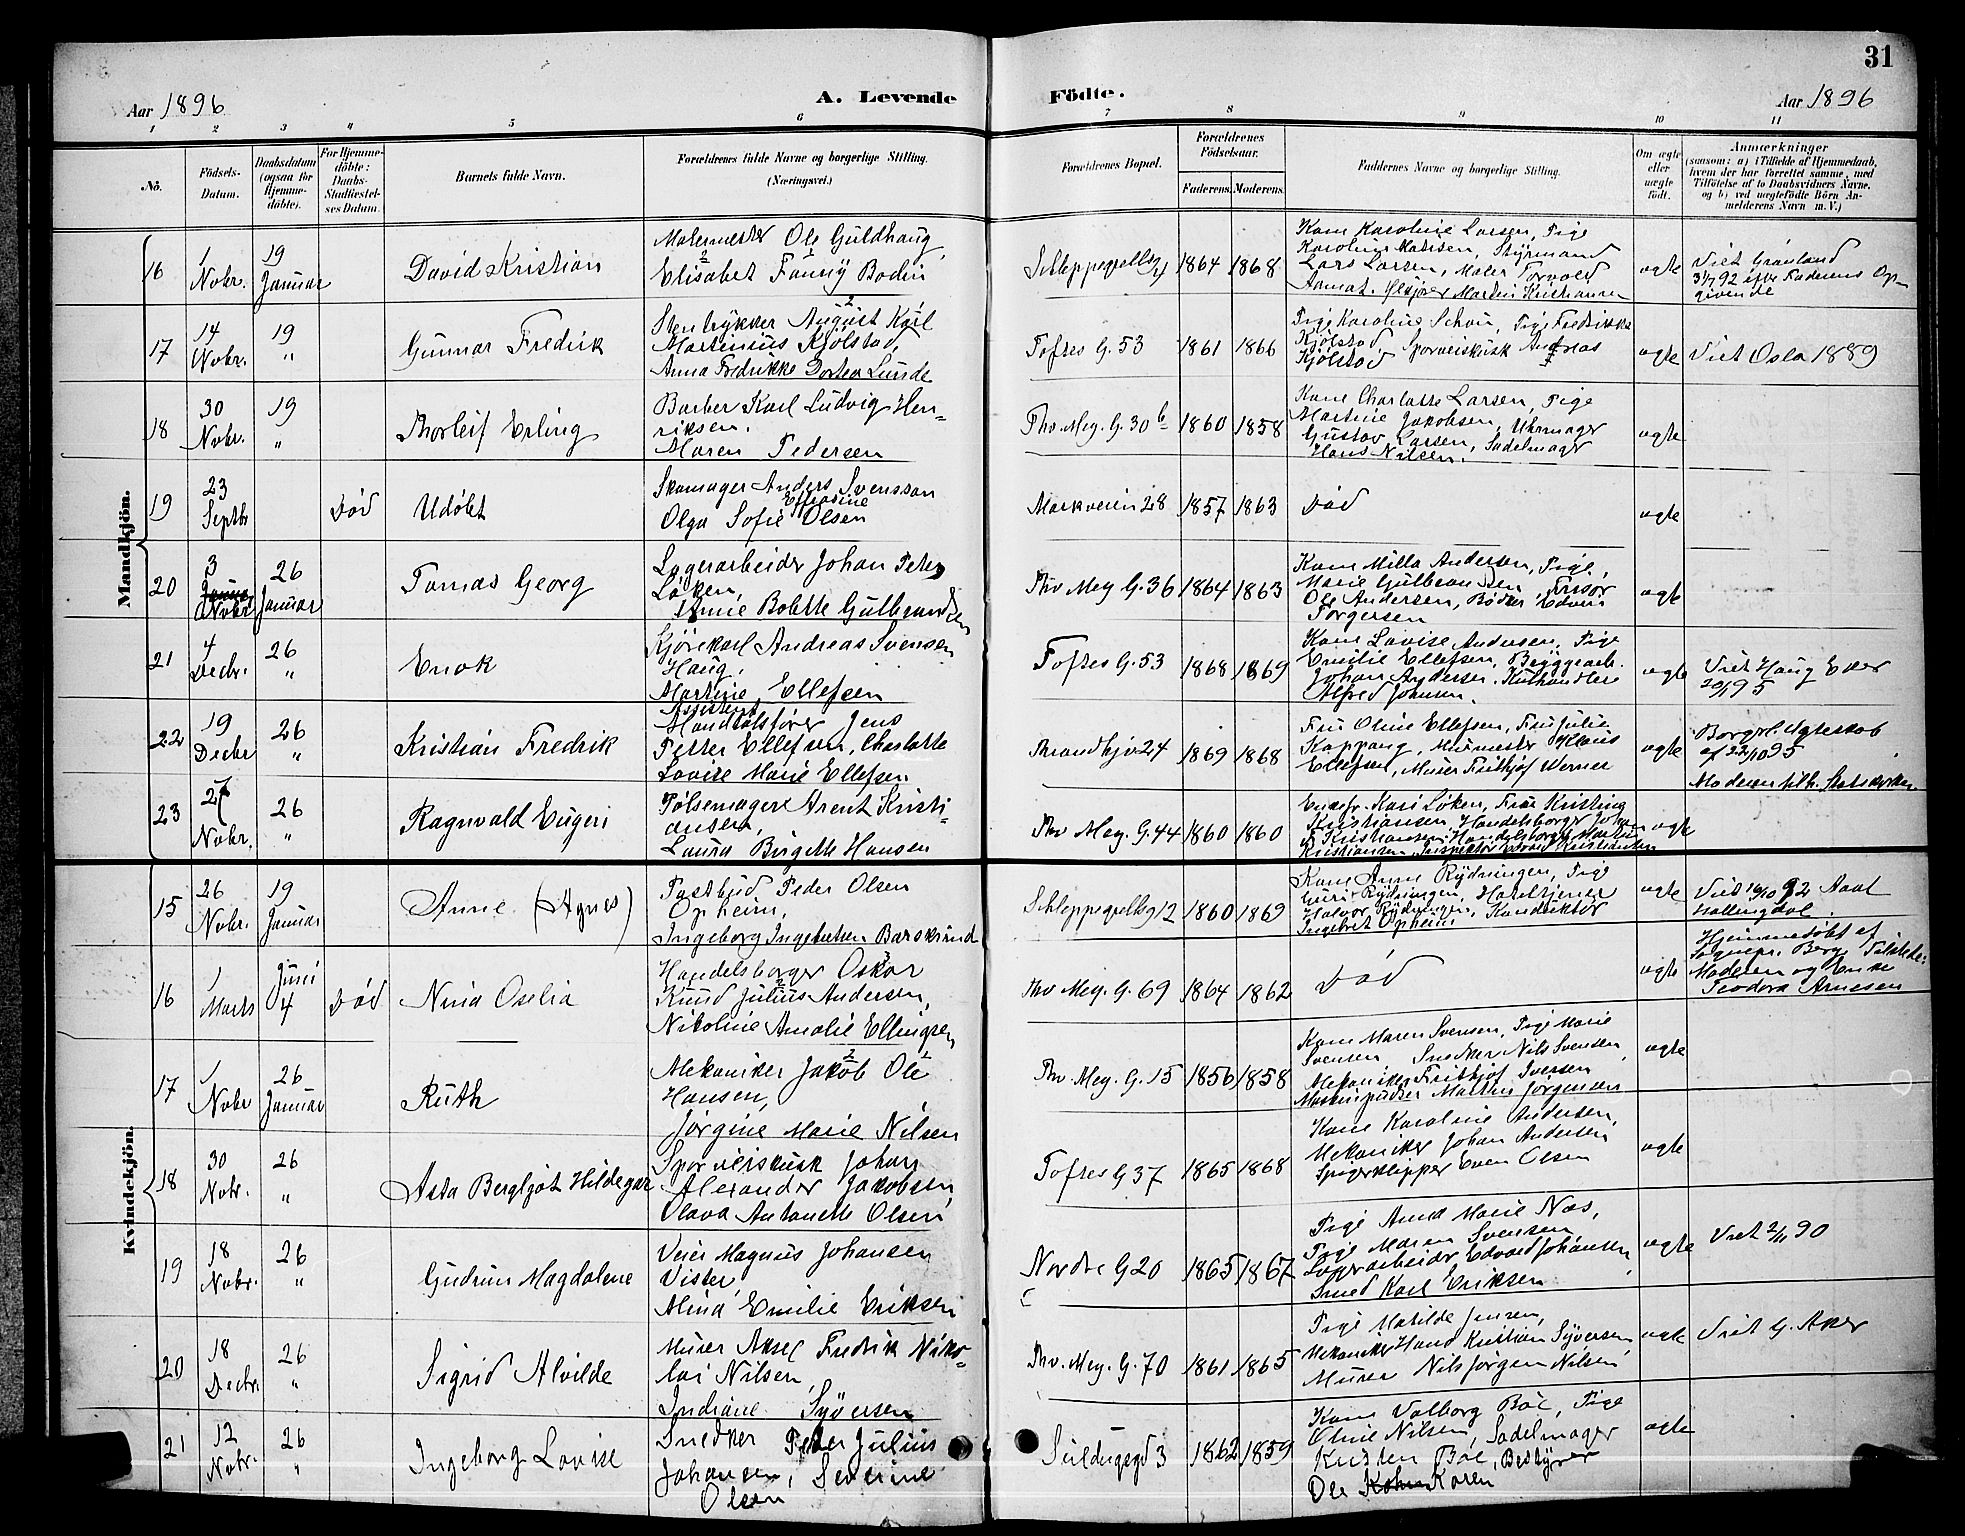 31
Aar 1896
A. Levende Födte.
Aar 1896
1 2 3 4 5 6 7 8 9 10 11
No.
Födsels-Datum.
Daabsdatum (ogsaa for Hjemme-döbte).
For Hjemme-döbte: Daabs-Stadfæstel-ses Datum.
Barnets fulde Navn.
Forældrenes fulde Navne og borgerlige Stilling. (Næringsvei.)
Forældrenes Bopæl.
Forældrenes Födselsaar.
Faderens. Moderens.
Faddernes Navne og borgerlige Stilling.
Om ægte eller uægte født.
Anmærkninger
(saasom: a) i Tilfælde af Hjemmedaab, hvem der har forrettet samme, med Tilföielse af to Daabsvidners Navne, og b) ved uægtefödte Börn An-melderens Navn m. V.)
Mandkjön.
16
1 Nobr.
19 Januar
David Kristian
Malermester Ole Guldhaug,
Elisabet Fanny Bodin
1864 1868
Kone Karoline Larsen, Pige
Karoline Mathisen, Styrmand
Lars Larsen, Maler Torvald
Martin Kristiansen
ægte
Viet Grønland
31/7 92 efter Faderens Op-
givende
17
14 Nobr.
19 "
Gunnar Fredrik
Stentrykker August Karl
Martinius Kjølstad,
Anna Fredrikke Dortea Lunde
Toftes G. 53
1861 1866
Pige Karoline Schou, Pige Fredrikke
Kjølstad Sporveiskusk Andreas
Kjølstad
ægte
Viet Oslo 1889
18
30 Nobr.
19 "
Thorleif Erling
Barber Karl Ludvig Hen-
riksen.
Maren Pedersen
Thv. Mey. G. 30 b
1860 1858
Kone Charlotte Larsen, Pige
Martine Jakobsen, Uhrmager
Gustav Larsen, Sadelmager
Hans Nilsen.
ægte
19
23 Septbr
Død
Udøbt
Skomager Anders Svensson
Olga Sofie Efrosine Olsen
Markveien 28
1857 1863
Død
ægte
20
3 Nobr
26 Januar
Tomas Georg
Lagerarbeider Johan Peter
Løken,
Anne Bolette Gulbrandsen
Thv Mey G. 36
1864 1863
Kone Milla Andersen, Pige
Marie Gulbrandsen, Frisør
Ole Andersen, Bødker Edvin
Torgersen
ægte
21
4 Decbr.
26 "
Enok
Kjørekarl Andreas Svensen
Haug,
Martine Ellefsen
Toftes G. 53
1868 1869
Kone Lovise Andersen, Pige
Emilie Ellefsen, Byggearb.
Johan Andersen, Kulhandler
Alfred Johnsen
ægte
Viet Haug Eker
95
22
19 Decbr
26 "
Kristian Fredrik
Assistent
Mandtalsfører Jens
Petter Ellefsen, Charlotte
Lovise Marie Ellefsen
Trondhjv. 24
1869 1868
Fru Oline Ellefsen, Fru Julie
Kappang, Murmester Klaus
Ellefsen, Murer Fritjof Werner
ægte
Borgerl. Ægteskab
af 22/10 95
Moderen tilh. Statskirken.
23
27 Nobr.
26 "
Ragnvald Eugen
Pølsemager Arent Kristi-
ansen,
Laura Birgitte Hansen
Thv Mey. G. 44
1860 1860
Enkefr. Kari Løken, Frue Kristine
Kristiansen, Handelsborger Johan
Kristiansen, Handelsborger Martin
Kristiansen, Inspektør Edvard Kristiansen
ægte
Kvindekjön.
15
26 Nobr.
19 Januar
Anne (Agnes)
Postbud Peder Olsen
Opheim,
Ingeborg Ingebretsen Barskrind
Schleppegrellsg 12
1860 1869
Kone Anne Rydningen, Pige
Guri Rydningen, Hoteltjener
Halvor Rydningen, Konduktør
Ingebret Opheim
ægte
Viet 16/10 92 Aaal
Hallingdal.
16
1 Marts
Juni 4
Død
Nina Oselia
Handelsborger Oskar
Knud Julius Andersen,
Nikoline Amalie Ellingsen
Thv Mey. G. 69
1864 1862
Død
ægte
Hjemmedøbt af
Sognepr. Berg. Tilstede:
Moderen og Enke
Teodora Arnesen
17
1 Nobr
26 Januar
Ruth
Mekaniker Jakob Ole
Hansen,
Jørgine Marie Nilsen
Thv. Mey. G. 15
1856 1858
Kone Maren Svensen, Pige Marie
Svensen Snedker Nils Svendsen
Mekaniker Fritjof Iversen
Maskinpudser Martin Jørgensen
ægte
18
30 Nobr.
26 "
Asta Bergljot Hildegar
Sporveiskusk Johan
Alexander Jakobsen,
Olava Antonette Olsen
Toftes G 37
1865 1868
Kone Karoline Andersen,
Mekaniker Johan Andersen
Spigerklipper Even Olsen
ægte
19
18 Nobr.
26 "
Gudrun Magdalene
Veier Magnus Johansen
Vister,
Alina Emilie Eriksen
Nordre G 20
1865 1867
Pige Anna Marie Næs,
Pige Maren Svensen
Lagerarbeider Edvard Johansen,
Smed Karl Eriksen
ægte
Viet 2/11 90
20
18 Decbr.
26 "
Sigrid Alvilde
Murer Aksel Fredrik Niko-
lai Nilsen,
Indiane Syversen
Thv. Mey. G. 70
1861 1865
Pige Matilde Jensen,
Mekaniker Hans Kristian Syversen
Murer Nils Jørgen Nilsen
ægte
Viet G. Aker
21
12 Nobr.
26 "
Ingeborg Lovise
Snedker Peder Julius
Johansen, Severine
Olsen
1862 1859
Kone Valborg Bøe, Pige
Oline Nilsen, Sadelmager
Kristen Bøe, Bestyrer
Ole Koren
ægte